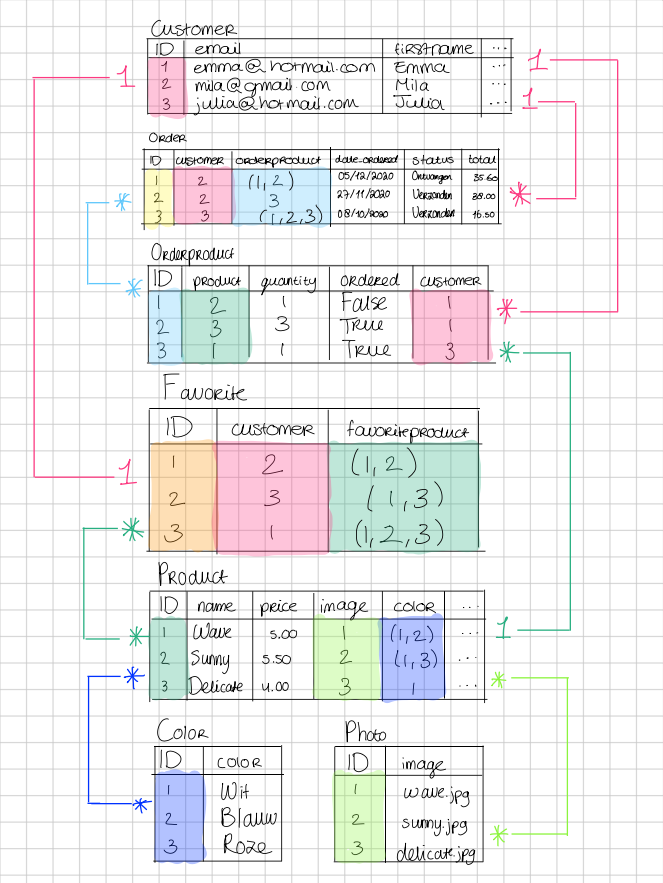 Customer
ID email firstname ...
1 emma@hotmail.com Emma ... 1
1 2 mila@gmail.com Mila ...
3 julia@hotmail.com Julia ... 1
Order
ID customer orderproduct date_ordered status total
1 2 (1,2) 05/12/2020 Ontvangen 35.60
* 2 2 3 27/11/2020 Verzonden 38.00 *
3 3 (1,2,3) 08/10/2020 Verzonden 16.50
Orderproduct
* ID product quantity ordered customer
1 2 1 False 1 *
2 3 3 True 1
3 1 1 True 3 *
Favorite
ID customer favoriteproduct
1 1 2 (1,2)
2 3 (1,3)
* 3 1 (1,2,3)
Product
ID name price image color ...
* 1 Wave 5.00 1 (1,2) ... 1
2 Sunny 5.50 2 (1,3) ...
* 3 Delicate 4.00 3 1 ... *
Color Photo
ID color ID image
* 1 Wit 1 wave.jpg
2 Blauw 2 sunny.jpg *
3 Roze 3 delicate.jpg